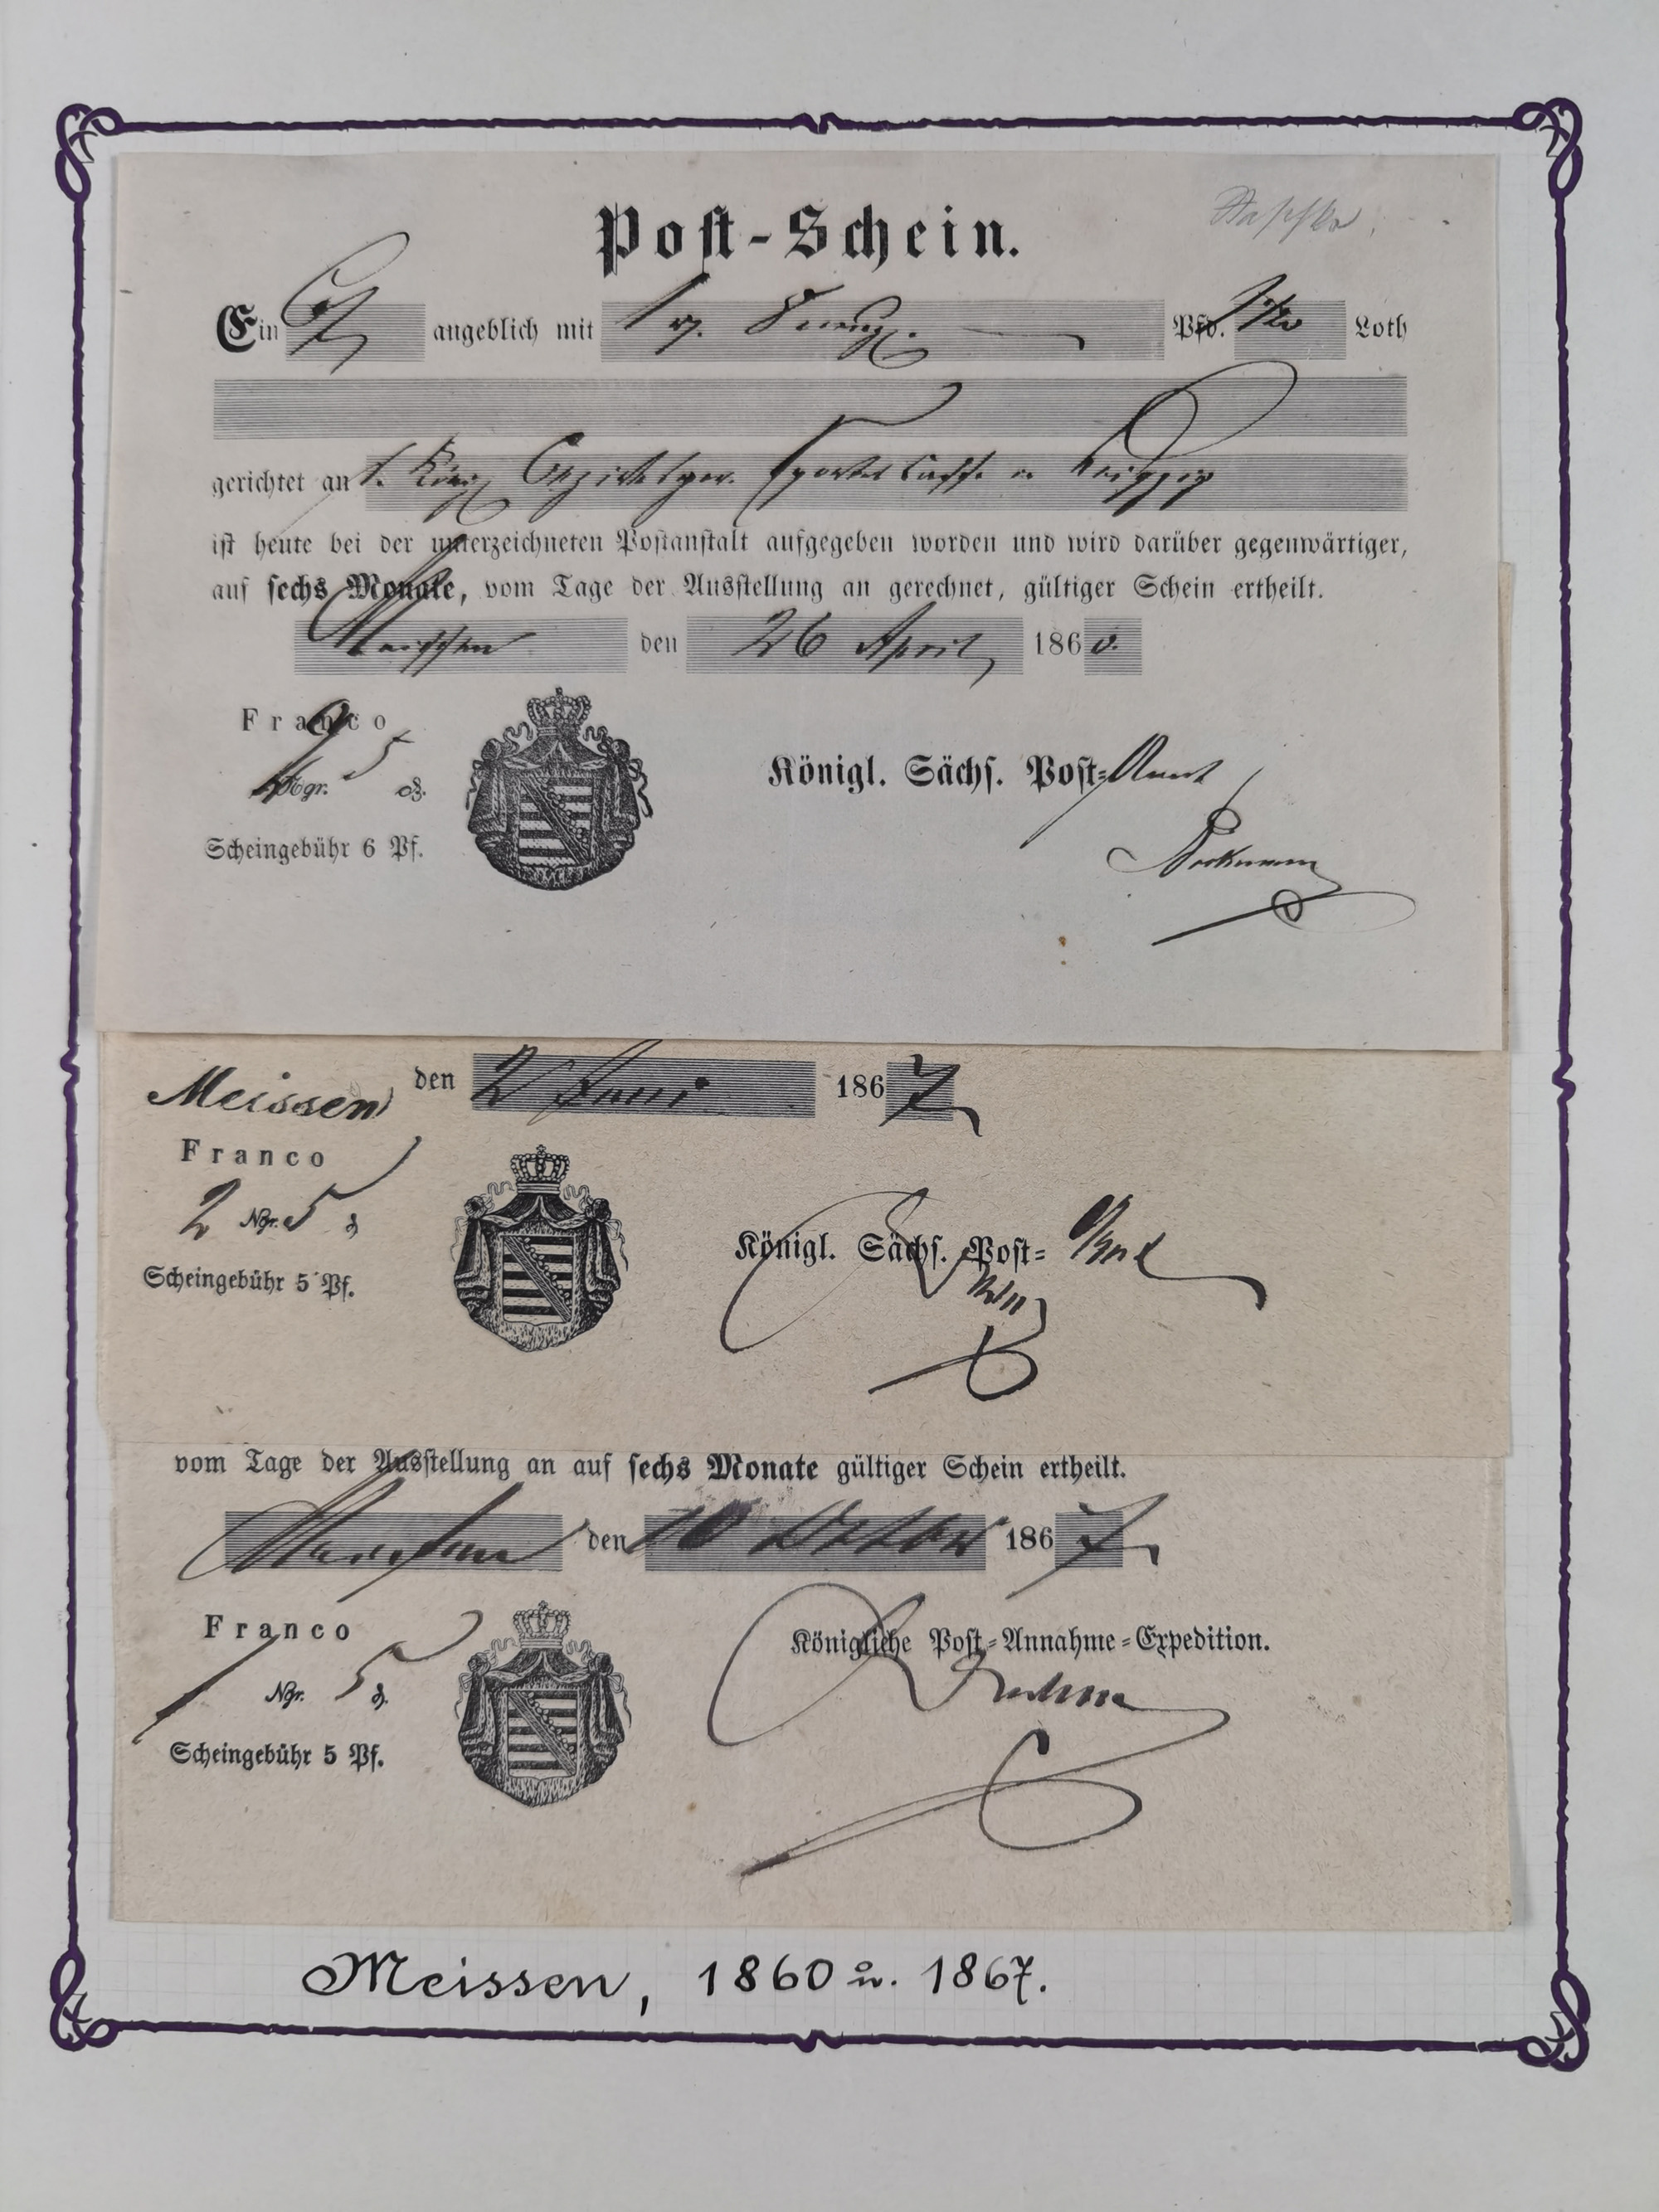 Post-Schein.
Ein angeblich mit 1 Pfd. Loth
gerichtet an Leipzig
ist heute bei der unterzeichneten Postanstalt aufgegeben worden und wird darüber gegenwärtiger,
auf sechs Monate, vom Tage der Ausstellung an gerechnet, gültiger Schein ertheilt.
Meissen den 26 April 1860.
Franco
Ngr. 5 ₰.
Scheingebühr 6 Pf.
Königl. Sächs. Post-Amt
Meissen den 2 Juni 1867
Franco
2 Ngr. 5 ₰
Scheingebühr 5 Pf.
Königl. Sächs. Post-Amt
vom Tage der Ausstellung an auf sechs Monate gültiger Schein ertheilt.
Meissen den 10 October 1867
Franco
1 Ngr. 5 ₰.
Scheingebühr 5 Pf.
Königliche Post-Annahme-Expedition.
Meissen, 1860 u. 1867.